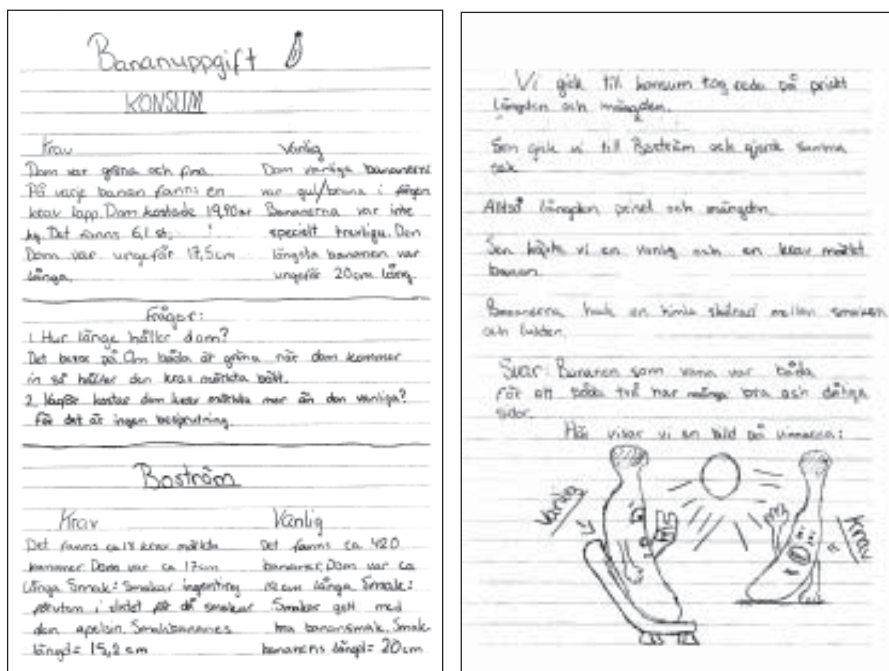 Bananuppgift
KONSUM
Krav
Dom var gröna och fina.
På varje banan fanns en
krav lapp. Dom kostade 19,90 kr
kg. Det fanns 61 st.
Dom var ungefär 17,5cm
långa.
Vanlig
Dom vanliga bananerna
var gul/bruna i färgen
Bananerna var inte
speciellt trevliga. Den
längsta bananen var
ungefär 20cm lång.
Frågor:
1. Hur länge håller dom?
Det beror på Om båda är gröna när dom kommer
in så håller den krav märkta bäst.
2. Varför kostar dom krav märkta mer än den vanliga?
För det är ingen besprutning.
Boström
Krav
Det fanns ca krav märkta
bananer. Dom var ca 17cm
långa Smak: Smakar ingenting
förutom i slutet för då smakar
den apelsin. Smakbananes
längd= 15,2 cm
Vanlig
Det fanns ca 420
bananer. Dom var ca
cm långa Smak:
Smakar gott med
bra banansmak. Smak
bananens längd= 20cm
Vi gick till konsum tog reda på priset
längden och mängden.
Sen gick vi till Boström och gjorde samma
sak.
Alltså längden priset och mängden.
Sen köpte vi en vanlig och en krav märkt
banan.
Bananerna hade en himla skillnad mellan smaken
och lukten.
Svar: Bananen som vann var båda
för att båda två har många bra och dåliga
sidor.
Här visar vi en bild på vinnarna:
Vanlig
Krav